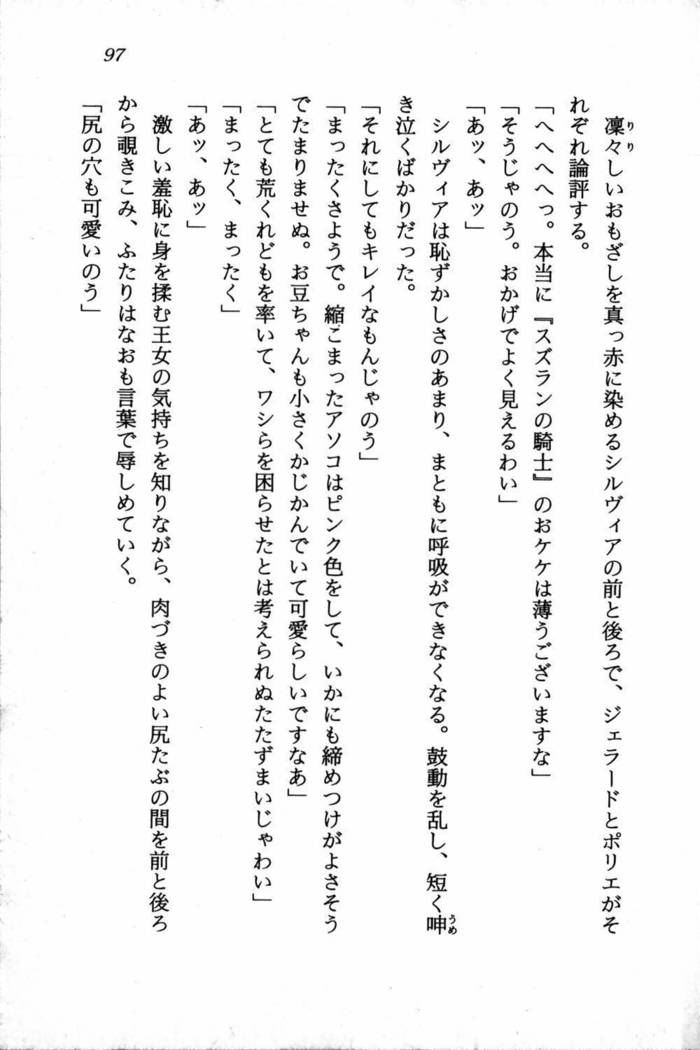 97
凜々しいおもざしを真っ赤に染めるシルヴィアの前と後ろで、ジェラードとポリエがそ
りり
れぞれ論評する。
「へへへへっ。本当に『スズランの騎士』のおケケは薄うございますな」
「そうじゃのう。おかげでよく見えるわい」
「あッ、あッ」
シルヴィアは恥ずかしさのあまり、まともに呼吸ができなくなる。鼓動を乱し、短く呻
うめ
き泣くばかりだった。
「それにしてもキレイなもんじゃのう」
「まったくさようで。縮こまったアソコはピンク色をして、いかにも締めつけがよさそう
でたまりませぬ。お豆ちゃんも小さくかじかんでいて可愛らしいですなあ」
「とても荒くれどもを率いて、ワシらを困らせたとは考えられぬたたずまいじゃわい」
「まったく、まったく」
「あッ、あッ」
激しい羞恥に身を揉む王女の気持ちを知りながら、肉づきのよい尻たぶの間を前と後ろ
から覗きこみ、ふたりはなおも言葉で辱しめていく。
「尻の穴も可愛いのう」